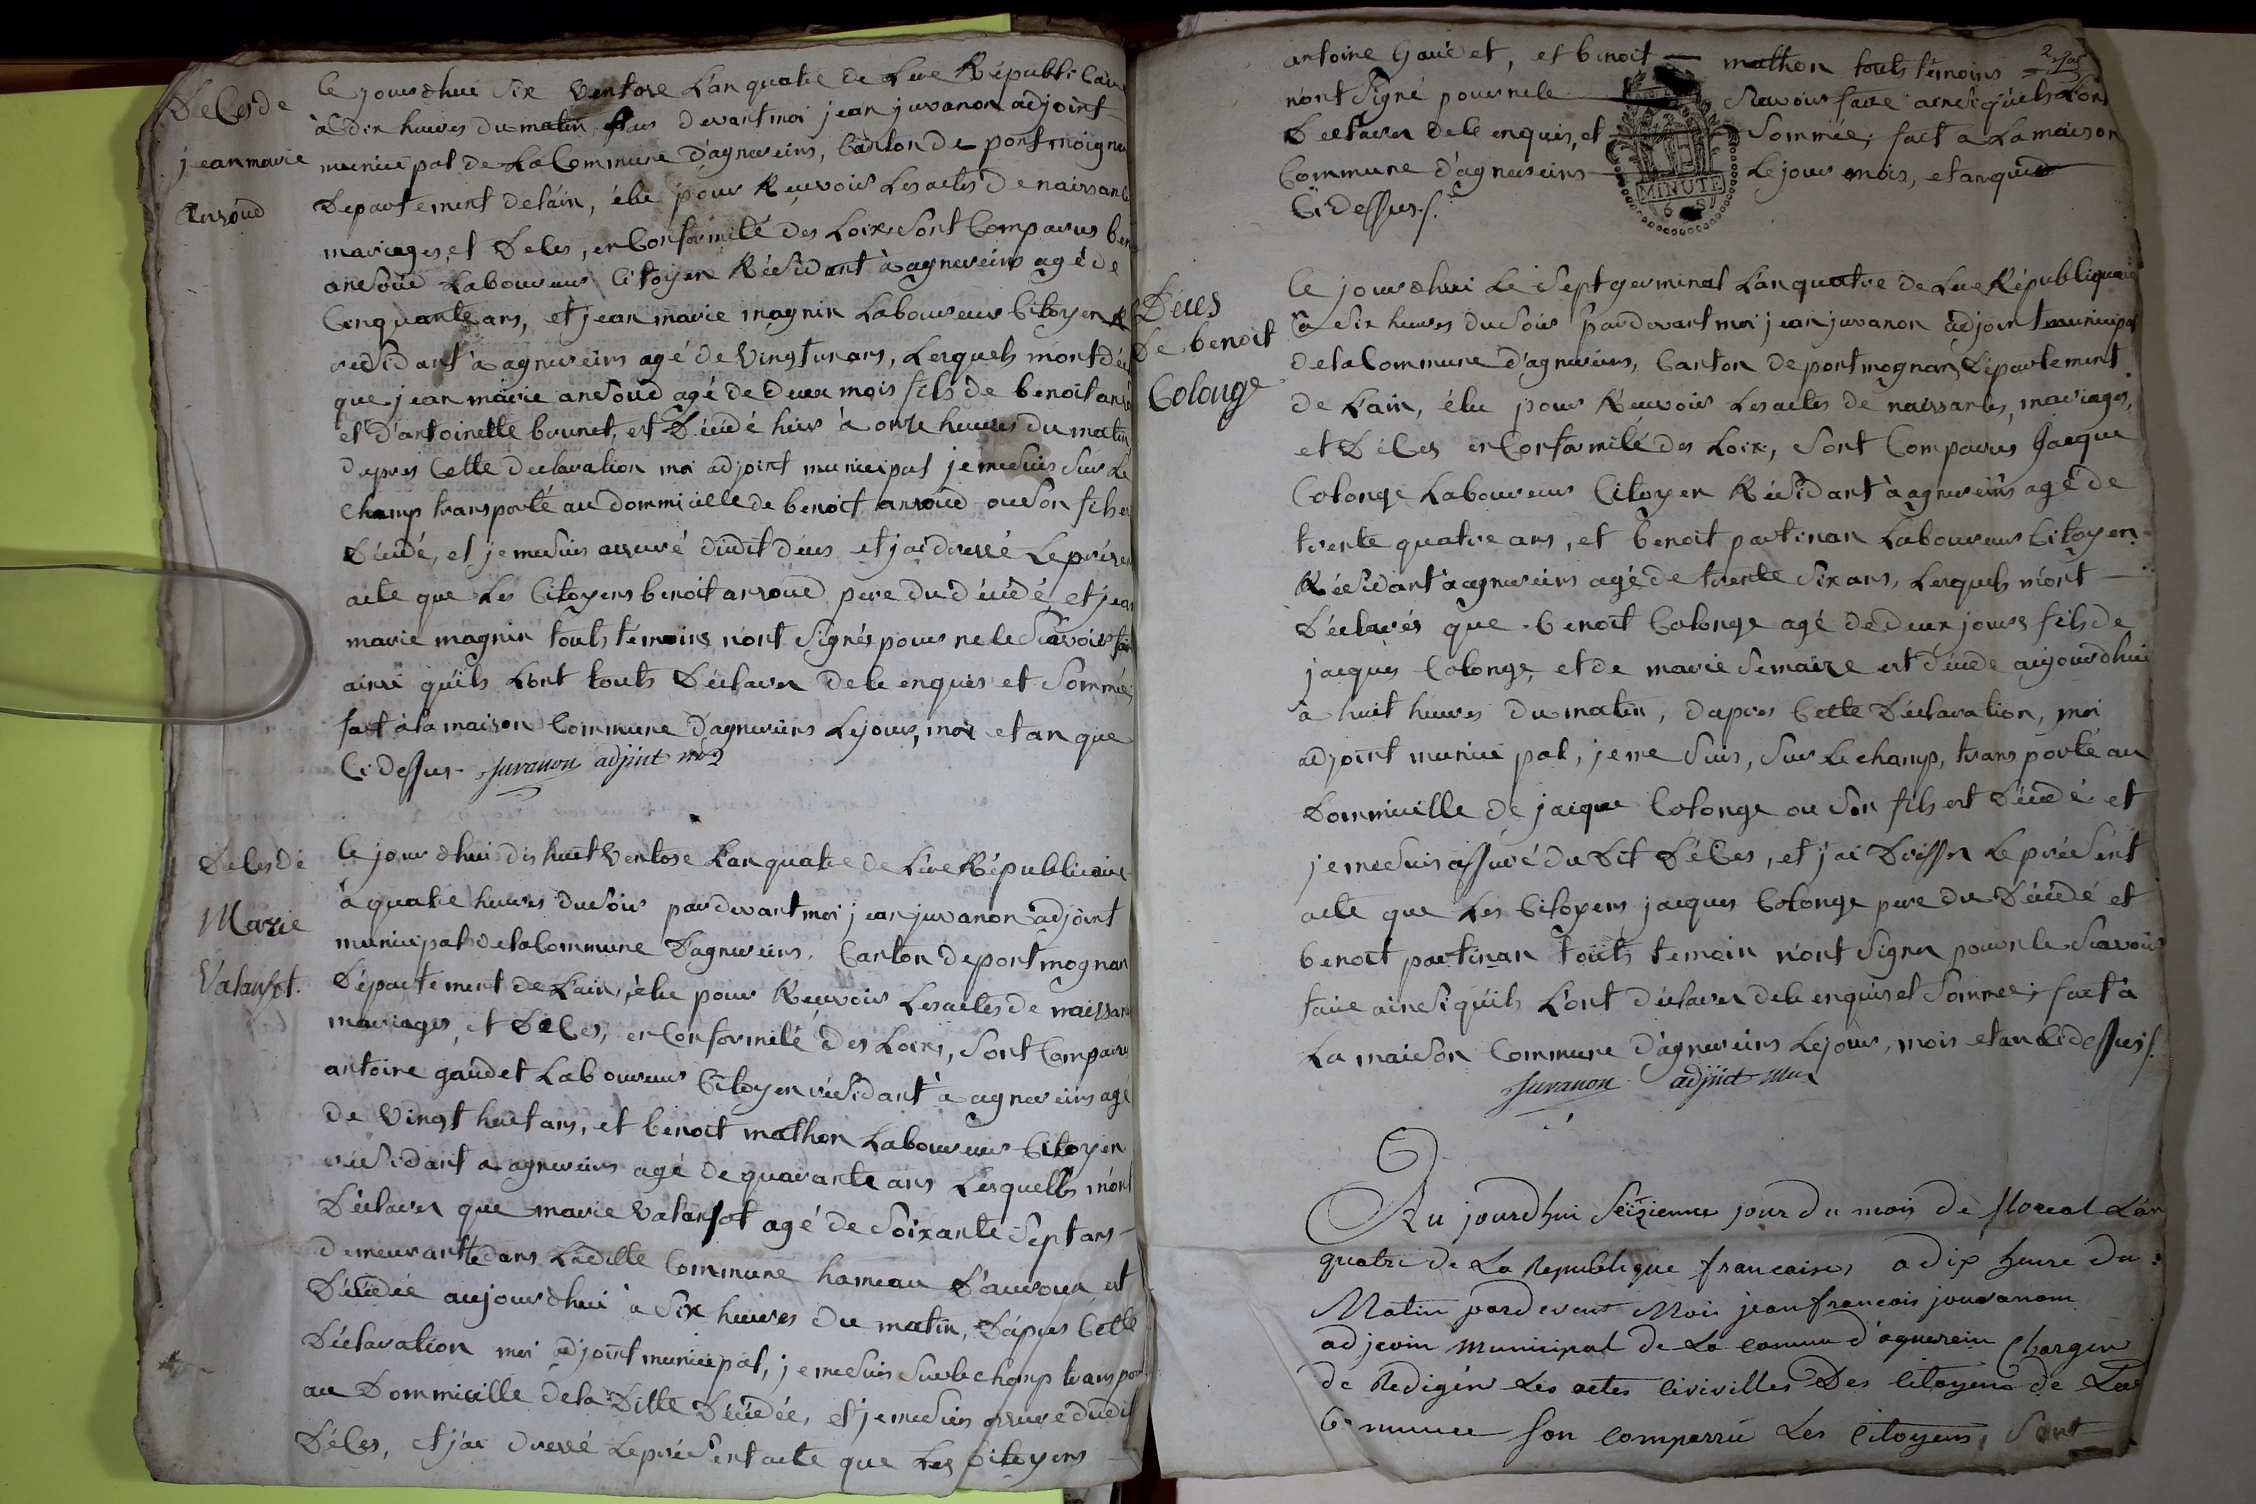 Deces de
jean marie
anróud
Ce jourd'hui six ventose L'an quatre de L'ere Républicaine
à dix heures du matin, par devant moi jean juvanon adjoint
municipal de La Commune d'agnereins, Canton de pont moignan
Département de l'ain, élu pour Recevoir Les actes de naissance
mariages, et Deces, en Conformité des Loix, Sont Comparus ben
ansoud Laboureur Citoyen Résidant à agnereins agé de
Cinquante ans, et jean marie magnin Laboureur Citoyen R
residant à agnereins agé de vingt un ans, Lesquels m'ont déc
que jean marie ansoud agé de deux mois fils de benoit an
et d'antoinette brunet, est Décédé hier à onze heures du matin
dapres Cette declaration moi adjoint municipal je me suis Sur Le
Champ transporté au dommicille de benoit anroud ou Son fils e
Décédé, et je me suis assuré dudit déces et j'ai dressé Le présen
acte que Les Citoyens benoit anroud pere du décédé, et jean
marie magnin touts témoins n'ont signés pour ne le Scavoir fai
ainsi qu'ils L'ont touts Déclarer de ce enquis et Sommés;
fait à la maison Commune D'agnereins Le jour, moi et an que
Ci dessus. Juvanon adjint mu
Deces de
Marie
Valansot.
Ce jourd'hui dix huit ventose L'an quatre de L'ere Républicaine
à quatre heures du Soir par devant moi jean juvanon adjoint
municipal de la Commune D'agnereins, Canton de pont mognan
Département de L'ain, élu pour Recevoir Les actes de naissan
mariages, et Déces, en Conformité des Loix, Sont Comparu
antoine gaudet Laboureur Citoyen résidant à agnereins agé
de vingt huit ans, et benoit mathon Laboureur Citoyen
résidant a agnereins agé de quarante ans Lesquells m'ont
Déclarer que marie valansot agé de Soixante Sept ans
demeurantte dans Laditte Commune hameau D'
est
Décédée aujourd'hui à Six heures du matin, Dapres Cette
Déclaration moi adjoint municipal, je me suis Sur le champ transpor
au Dommicille de la Ditte Décédée, et je me suis assuré dudit
Déces, et j'ai dressé Le présent acte que Les Citoyens
antoine Gaudet, et benoit mathon touts témoins
n'ont Signé pour ne le Scavoir faire ainsi qu'ils L'ont
Déclarer de ce enquis, et Sommée; fait a La maison
Commune d'agnereins Le jour mois, et an que
Ci dessus.
MINUTE
Déces
De benoit
Colonge
Ce jourd'hui Le Sept germinal L'an quatre de L'ere Républiquaine
à Six heures du Soir par devant moi jean juvanon adjoint municipal
de la Commune d'agnereins, Canton de pont mognan, Département
de L'ain, élu pour Recevoir Les actes de naissances, mariages,
et Déces en Conformité des Loix, Sont Comparus Jacque
Colonge Laboureur Citoyen Résidant à agnereins agé de
trente quatre ans, et benoit partinan Laboureur Citoyen
Résidant à agnereins agé de trente Six ans, Lesquels m'ont
Déclarés que benoit Colonge agé de deux jours fils de
jacques Colonge, et de marie Semaize est décédé aujourd'hui
à huit heures du matin, dapres Cette Déclaration, moi
adjoint municipal, je me Suis, Sur Le champ, transporté au
Dommicille de jacque Colonge ou Son fils est Décédé et
je me suis assuré du Dit Déces, et j'ai Dresser Le présent
acte que Les Citoyens jacques Colonge pere du Décédé et
benoit partinan touts temoin n'ont Signer pour ne le Scavoir
faire ainsi qu'ils L'ont déclarer de ce enquis et Sommée; fait à
La maison Commune D'agnereins Le jour, mois et an Ci dessus.
Juvanon adjint mu
Au jourd'hui Seizienne jour du mois de floreal L'an
quatre de La Republique francaises a dix heure du
Matin pardevant Moi jean francois jouvanom
adjeoin Municipal de La comune d'aguerein Chargée
de Redigér Les actes Civivilles Des Citoyens de La
Commune son comparrü Les Citoyens, Sont